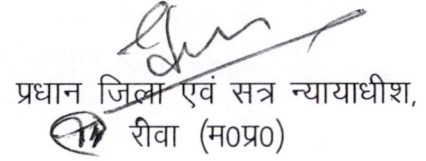 प्रधान जिला एवं सत्र न्यायाधीश,
रीवा (म0प्र0)